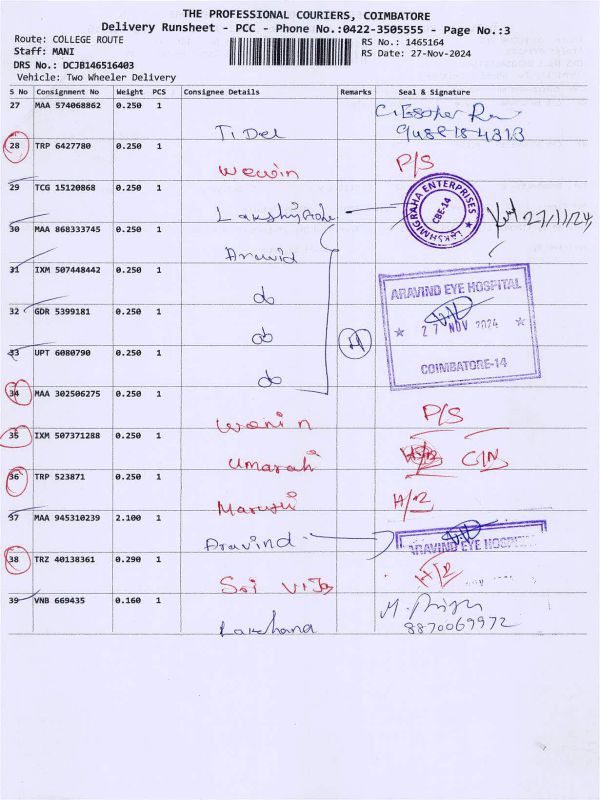 THE PROFESSIONAL COURIERS, COIMBATORE
Delivery Runsheet - PCC - Phone No.:0422-3505555 - Page No.:3
Route: COLLEGE ROUTE
RS No.: 1465164
Staff: MANI
RS Date: 27-Nov-2024
DRS No.: DCJB146516403
Vehicle: Two Wheeler Delivery
S No Consignment No Weight PCS Consignee Details Remarks Seal & Signature
27 MAA 574068862 0.250 1
Tidel
9488184313
28 TRP 6427780 0.250 1
Wewin P/S
29 TCG 15120868 0.250 1
LAKSHMIGRAHA ENTERPRISES
CBE-14
27/11/24
30 MAA 868333745 0.250 1
Aravid
31 IXM 507448442 0.250 1
do
ARAVIND EYE HOSPITAL
27 NOV 2024
COIMBATORE-14
32 GDR 5399181 0.250 1
do
33 UPT 6080790 0.250 1
do
34 MAA 302506275 0.250 1
P/S
35 IXM 507371288 0.250 1
Umarani
36 TRP 523871 0.250 1
Maruti H/2
37 MAA 945310239 2.100 1
Aravind
ARAVIND EYE HOSPITAL
38 TRZ 40138361 0.290 1
Sri Vija H/2
39 VNB 669435 0.160 1
Lakshana
8870069972